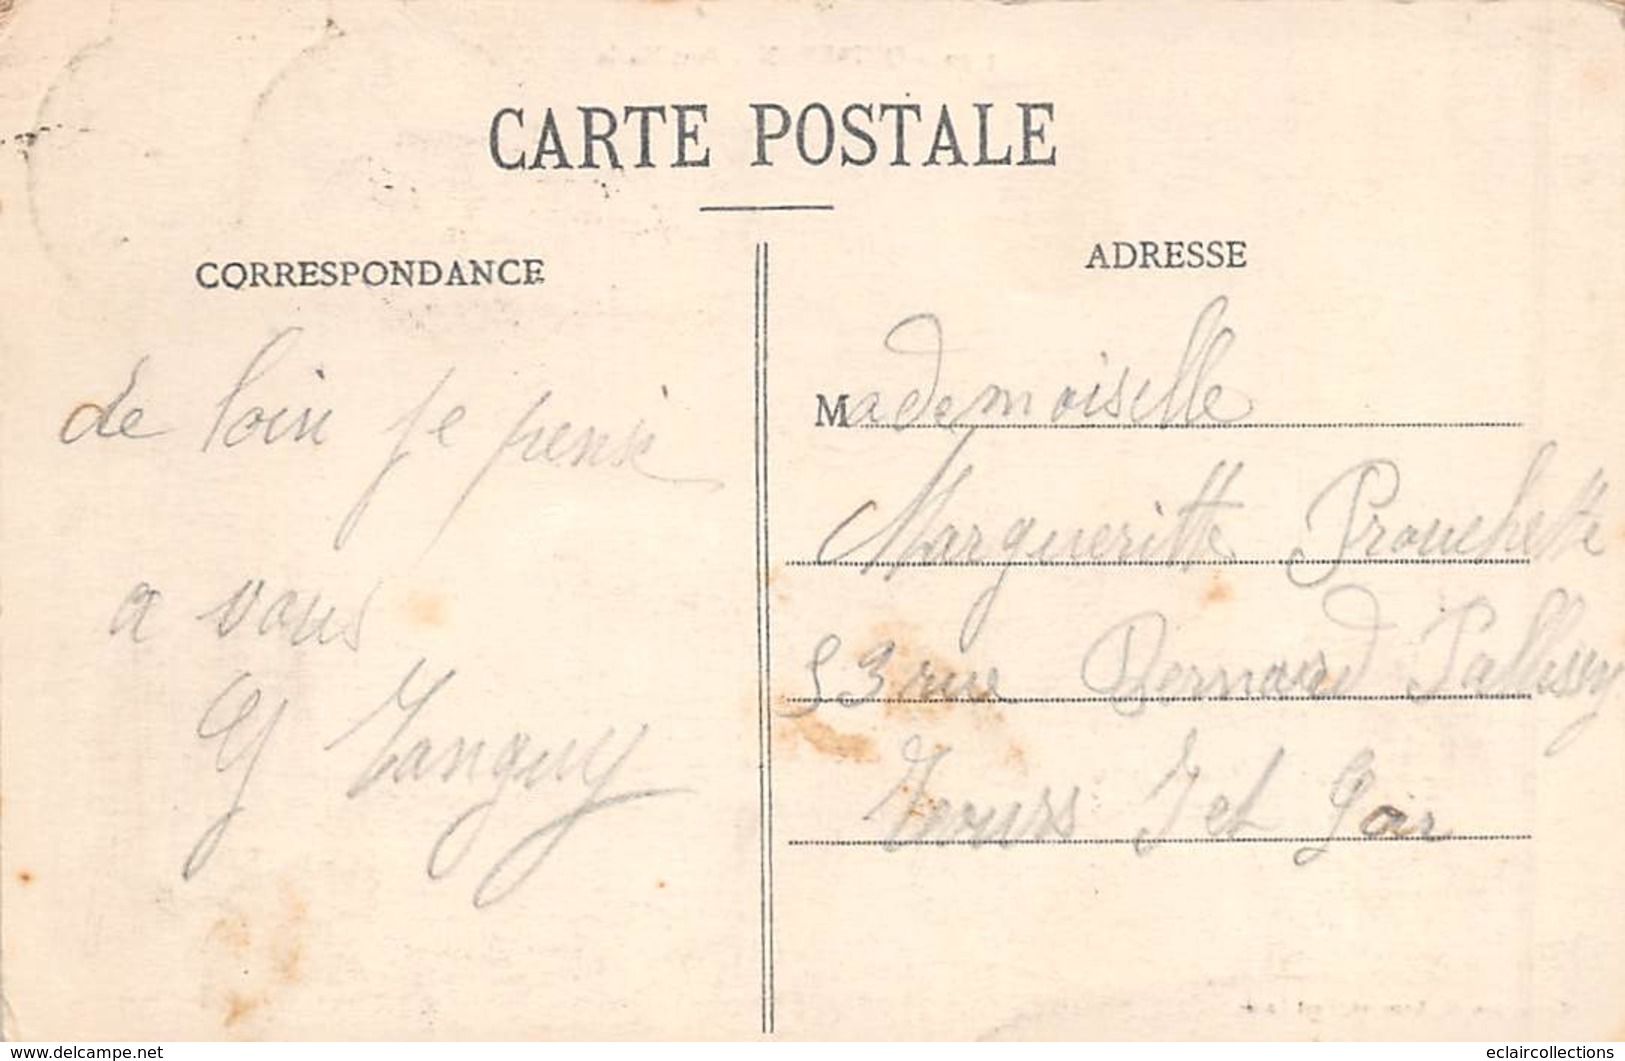 CARTE POSTALE
CORRESPONDANCE
de loin je pense
a vous
G Tanguy
ADRESSE
Mademoiselle
Margueritte Prouchette
53 rue Bernard Pallissy
Tours I et Loir
www.delcampe.net
eclaircollections